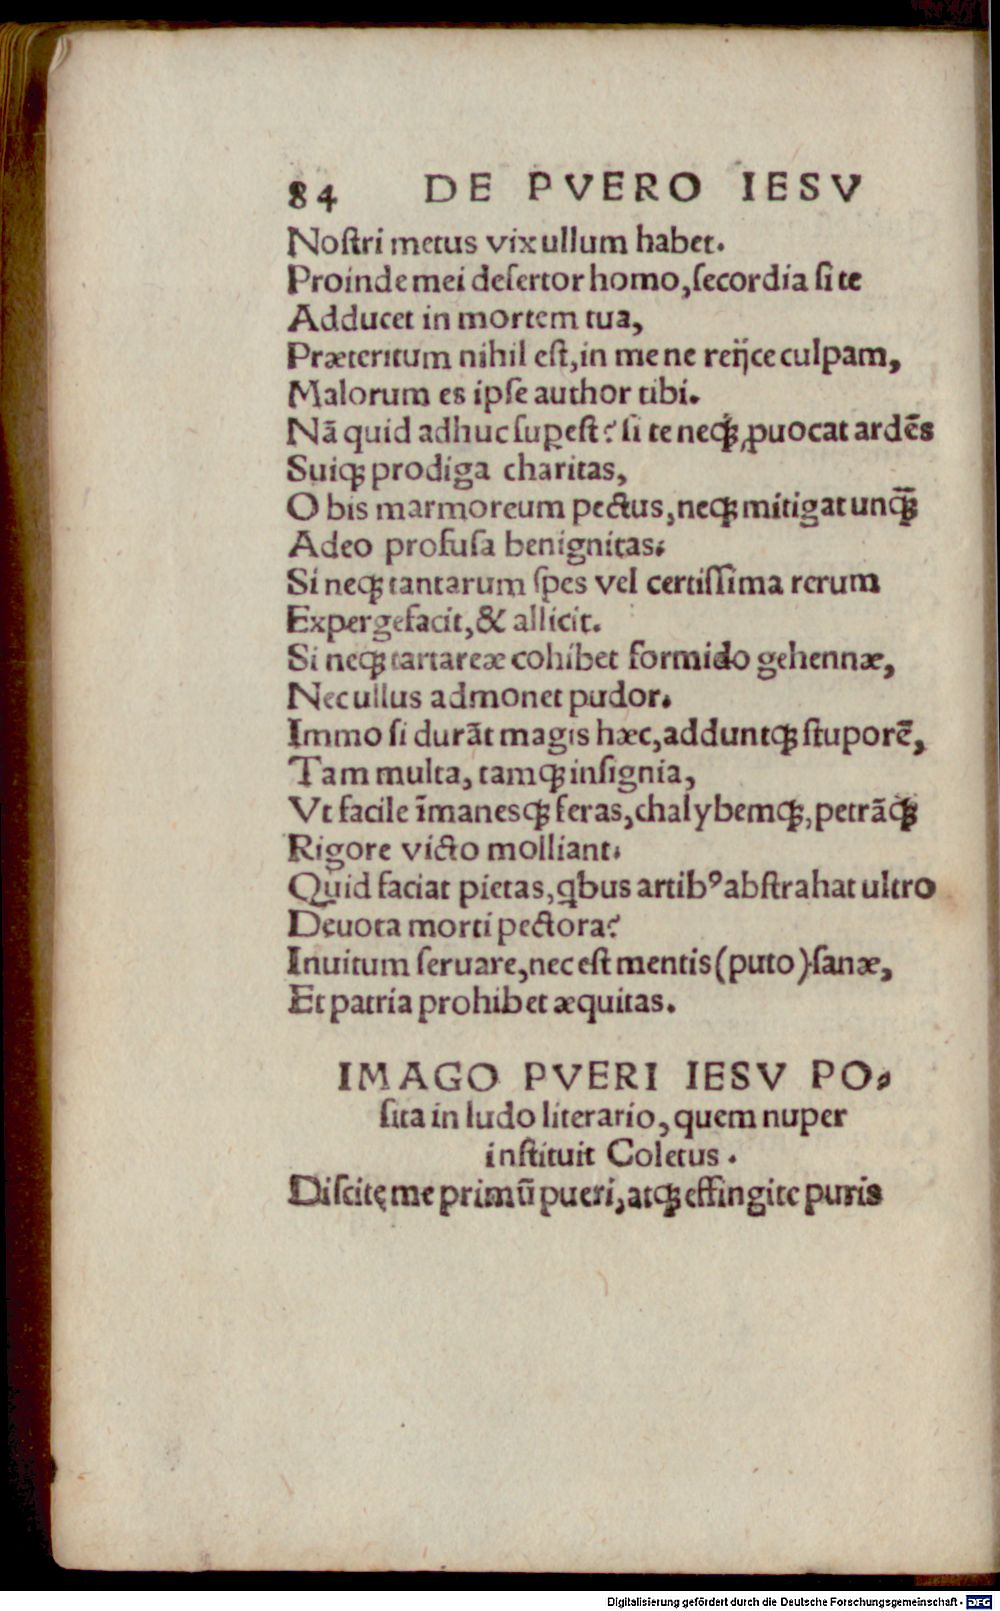 84 DE PVERO IESV
Noſtri metus vix ullum habet.
Proinde mei deſertor homo, ſecordia ſi te
Adducet in mortem tua,
Præteritum nihil eſt, in me ne reijce culpam,
Malorum es ipſe author tibi.
Nā quid adhuc suꝑeſt? ſi te neqꝫ ꝓuocat ardēs
Suiqꝫ prodiga charitas,
O bis marmoreum pectus, neqꝫ mitigat unqꝫ̄
Adeo profuſa benignitas.
Si neqꝫ tantarum ſpes vel certiſſima rerum
Expergefacit, & allicit.
Si neqꝫ tartareæ cohibet formido gehennæ,
Nec ullus admonet pudor.
Immo ſi durāt magis hæc, adduntqꝫ ſtuporē,
Tam multa, tamqꝫ inſignia,
Vt facile īmanesqꝫ feras, chalybemqꝫ, petrāqꝫ
Rigore victo molliant.
Quid faciat pietas, qbus artibꝰ abſtrahat ultro
Deuota morti pectora?
Inuitum ſeruare, nec eſt mentis (puto) ſanæ,
Et patria prohibet æquitas.
IMAGO PVERI IESV PO-
ſita in ludo literario, quem nuper
inſtituit Coletus.
Diſcitę me primū pueri, atqꝫ effingite puris
Digitalisierung gefördert durch die Deutsche Forschungsgemeinschaft - DFG